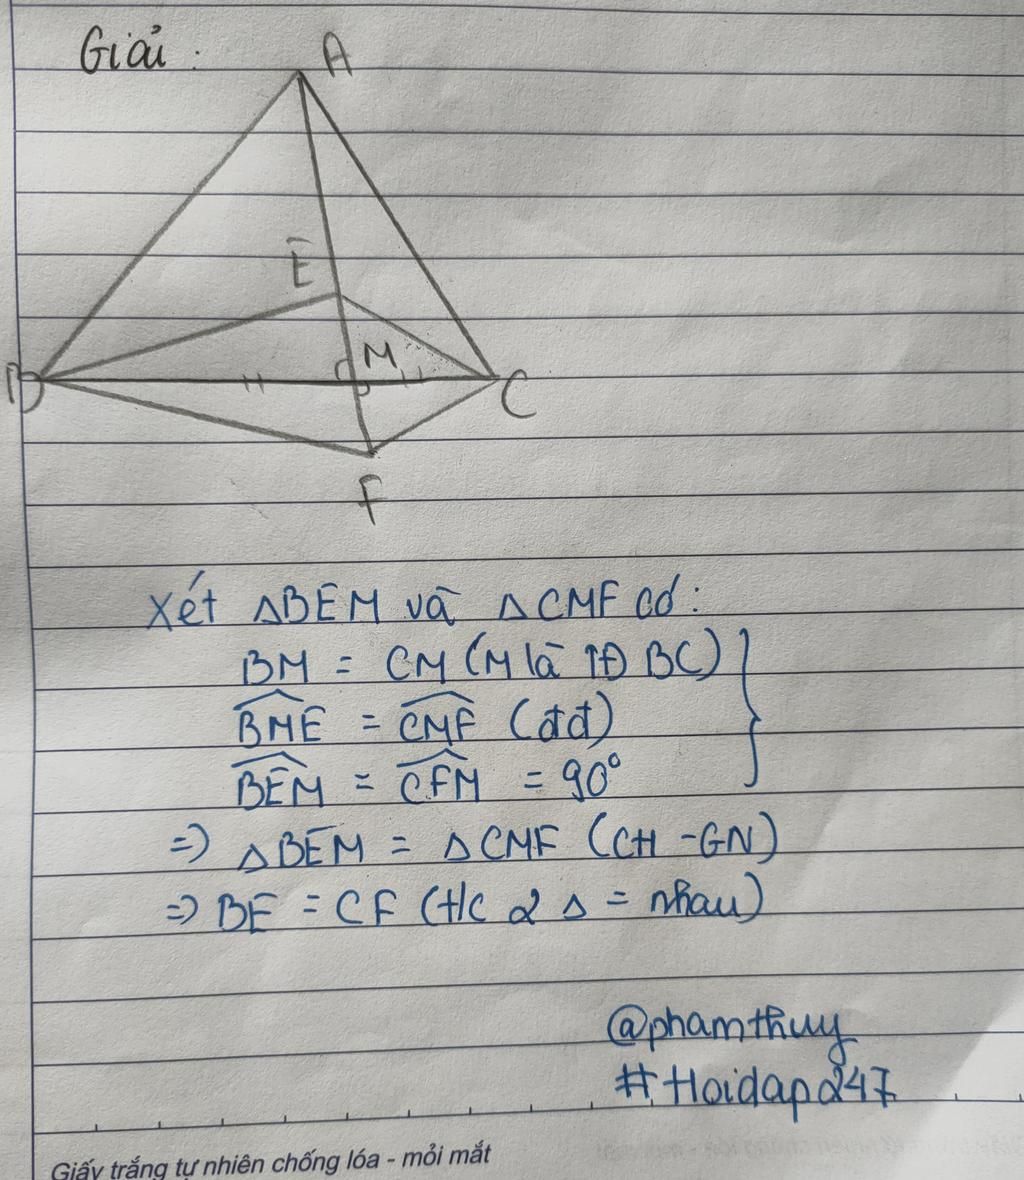 Giải :
A
E
M
B
C
F
Xét ΔBEM và ΔCMF có:
BM = CM (M là TĐ BC)
BME = CMF (đđ)
BEM = CFM = 90°
=> ΔBEM = ΔCMF (CH - GN)
=> BE = CF (t/c 2 Δ = nhau)
@phamthuy
#Hoidap247
Giấy trắng tự nhiên chống lóa - mỏi mắt